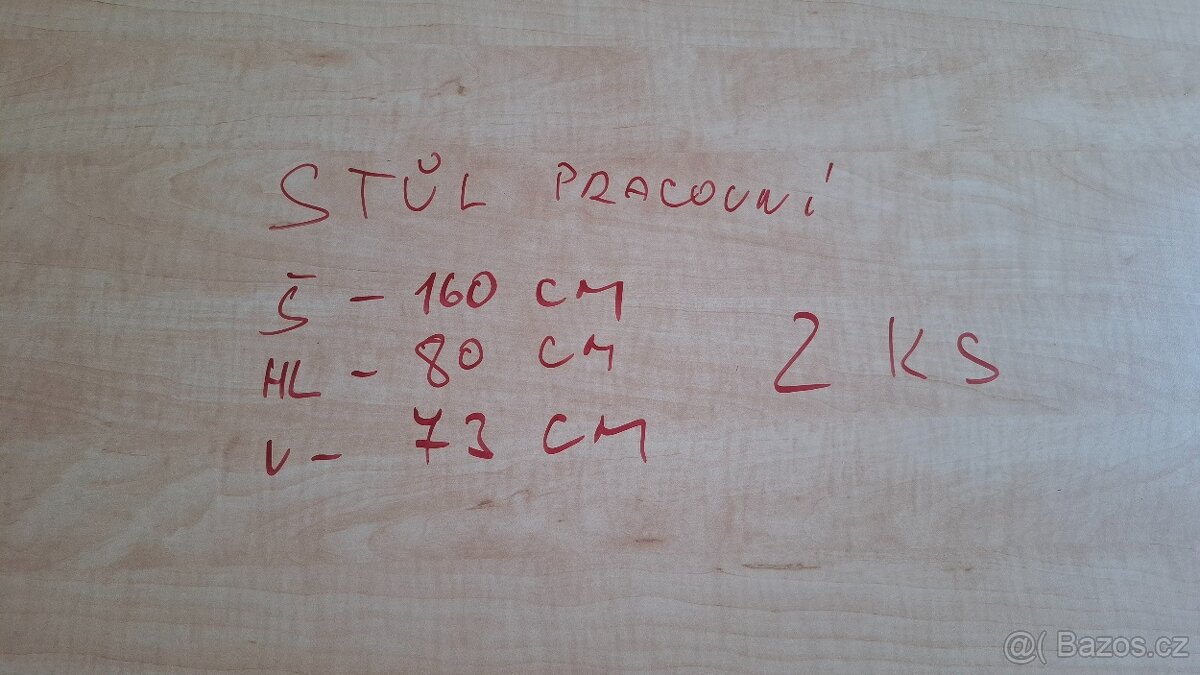 STŮL PRACOVNÍ
Š - 160 CM
HL - 80 CM
V - 73 CM
2 KS
@( Bazos.cz